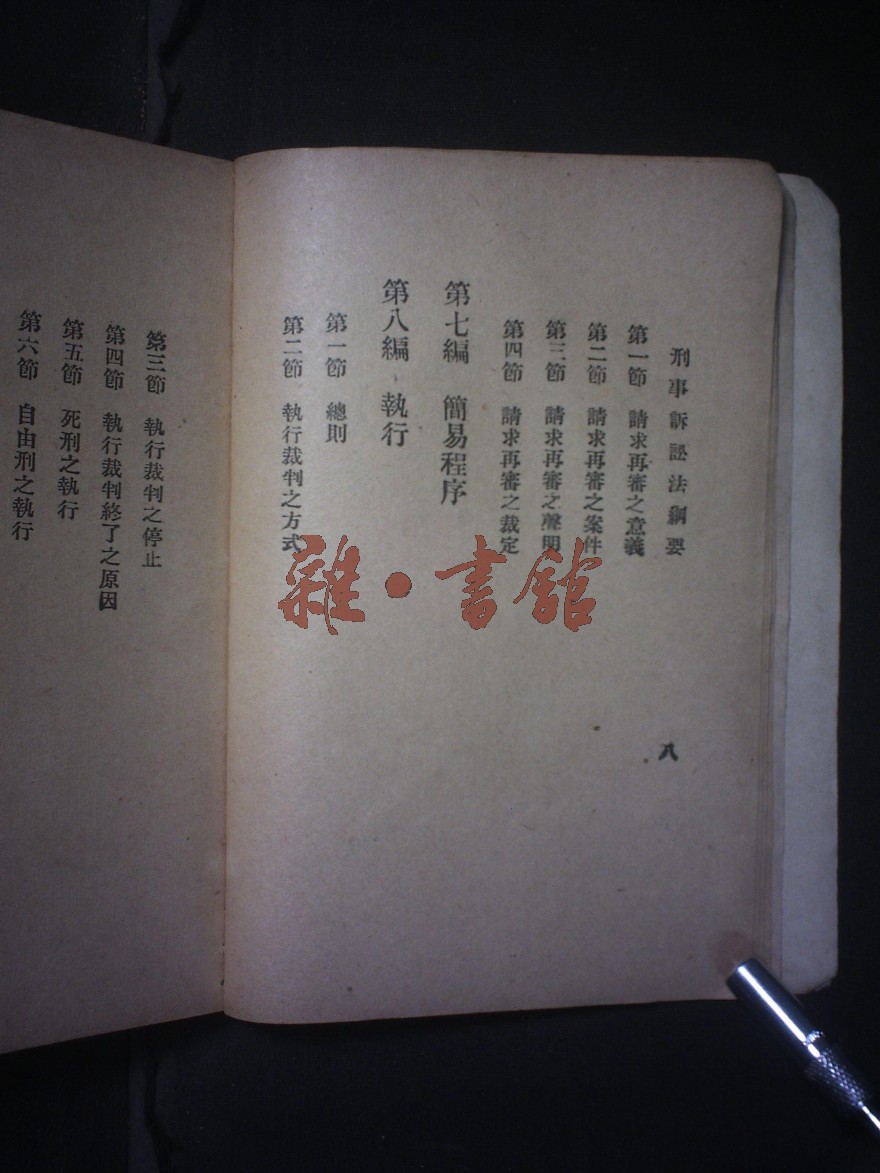 刑事訴訟法綱要
八
第一節 請求再審之意義
第二節 請求再審之案件
第三節 請求再審之聲明
第四節 請求再審之裁定
第七編 簡易程序
第八編 執行
第一節 總則
第二節 執行裁判之方式
第三節 執行裁判之停止
第四節 執行裁判終了之原因
第五節 死刑之執行
第六節 自由刑之執行
雜·書館